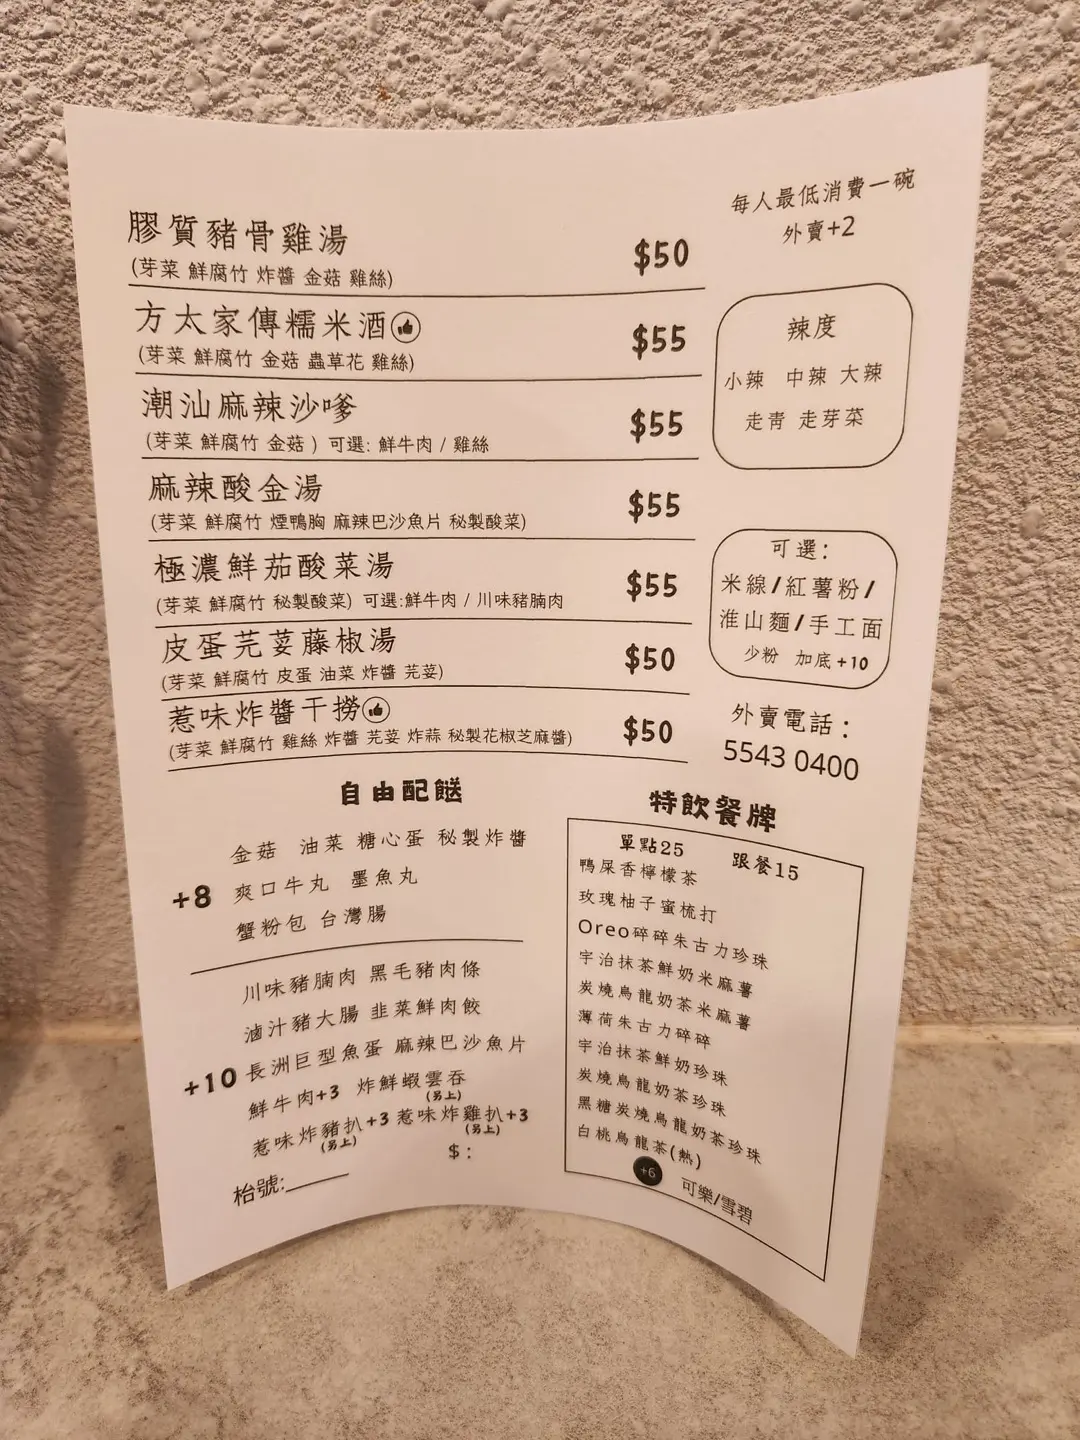 每人最低消費一碗
外賣+2
膠質豬骨雞湯 $50
(芽菜 鮮腐竹 炸醬 金菇 雞絲)
方太家傳糯米酒 $55
(芽菜 鮮腐竹 金菇 蟲草花 雞絲)
潮汕麻辣沙嗲 $55
(芽菜 鮮腐竹 金菇) 可選: 鮮牛肉 / 雞絲
麻辣酸金湯 $55
(芽菜 鮮腐竹 煙鴨胸 麻辣巴沙魚片 秘製酸菜)
極濃鮮茄酸菜湯 $55
(芽菜 鮮腐竹 秘製酸菜) 可選:鮮牛肉 / 川味豬腩肉
皮蛋芫荽藤椒湯 $50
(芽菜 鮮腐竹 皮蛋 油菜 炸醬 芫荽)
惹味炸醬干撈 $50
(芽菜 鮮腐竹 雞絲 炸醬 芫荽 炸蒜 秘製花椒芝麻醬)
辣度
小辣 中辣 大辣
走青 走芽菜
可選:
米線/紅薯粉/
淮山麵/手工面
少粉 加底+10
外賣電話:
5543 0400
自由配餸
金菇 油菜 糖心蛋 秘製炸醬
+8 爽口牛丸 墨魚丸
蟹粉包 台灣腸
川味豬腩肉 黑毛豬肉條
滷汁豬大腸 韭菜鮮肉餃
+10 長洲巨型魚蛋 麻辣巴沙魚片
鮮牛肉+3 炸鮮蝦雲吞
(另上)
惹味炸豬扒+3 惹味炸雞扒+3
(另上) (另上)
$:
枱號:
特飲餐牌
單點25 跟餐15
鴨屎香檸檬茶
玫瑰柚子蜜梳打
Oreo碎碎朱古力珍珠
宇治抹茶鮮奶米麻薯
炭燒烏龍奶茶米麻薯
薄荷朱古力碎碎
宇治抹茶鮮奶珍珠
炭燒烏龍奶茶珍珠
黑糖炭燒烏龍奶茶珍珠
白桃烏龍茶(熱)
+6 可樂/雪碧